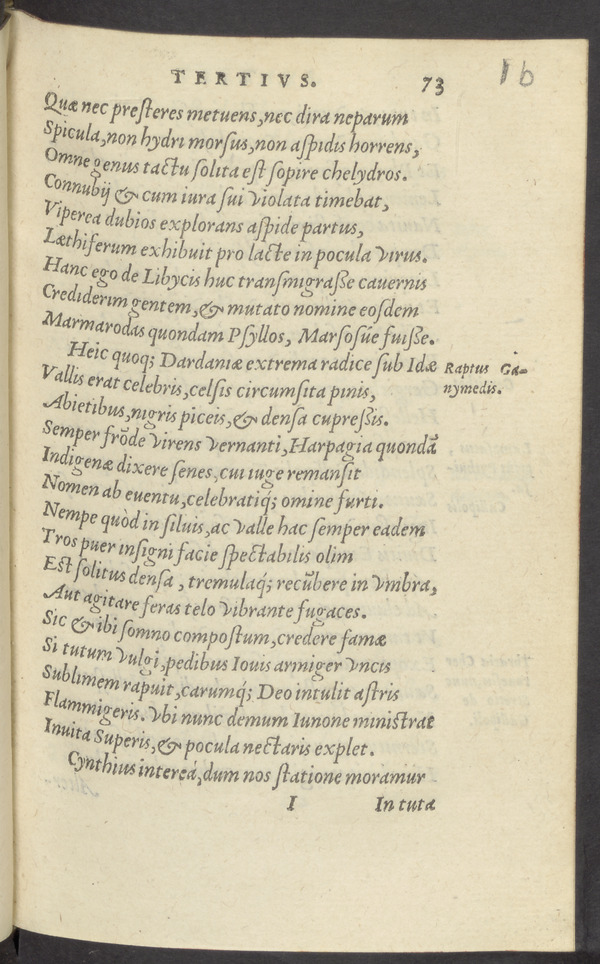 TERTIVS. 73
16
Quæ nec presteres metuens, nec dira neparum
Spicula, non hydri morsus, non aspidis horrens,
Omne genus tactu solita est sopire chelydros.
Connubij & cum iura sui violata timebat,
Viperea dubios explorans aspide partus,
Læthiferum exhibuit pro lacte in pocula virus.
Hanc ego de Libycis huc transmigraße cauernis
Crediderim gentem, & mutato nomine eosdem
Marmarodas quondam Psyllos, Marsosúe fuiße.
Heic quoq; Dardaniæ extrema radice sub Idæ
Raptus Ga-
nymedis.
Vallis erat celebris, celsis circumsita pinis,
Abietibus, nigris piceis, & densa cupreßis.
Semper frōde virens vernanti, Harpagia quondā
Indigenæ dixere senes, cui iuge remansit
Nomen ab euentu, celebratiq́; omine furti.
Nempe quòd in siluis, ac valle hac semper eadem
Tros puer insigni facie spectabilis olim
Est solitus densa, tremulaq́; recūbere in vmbra,
Aut agitare feras telo vibrante fugaces.
Sic & ibi somno compostum, credere famæ
Si tutum vulgi, pedibus Iouis armiger vncis
Sublimem rapuit, carumq́; Deo intulit astris
Flammigeris. vbi nunc demum Iunone ministrat
Inuita Superis, & pocula nectaris explet.
Cynthius intereá, dum nos statione moramur
I In tuta